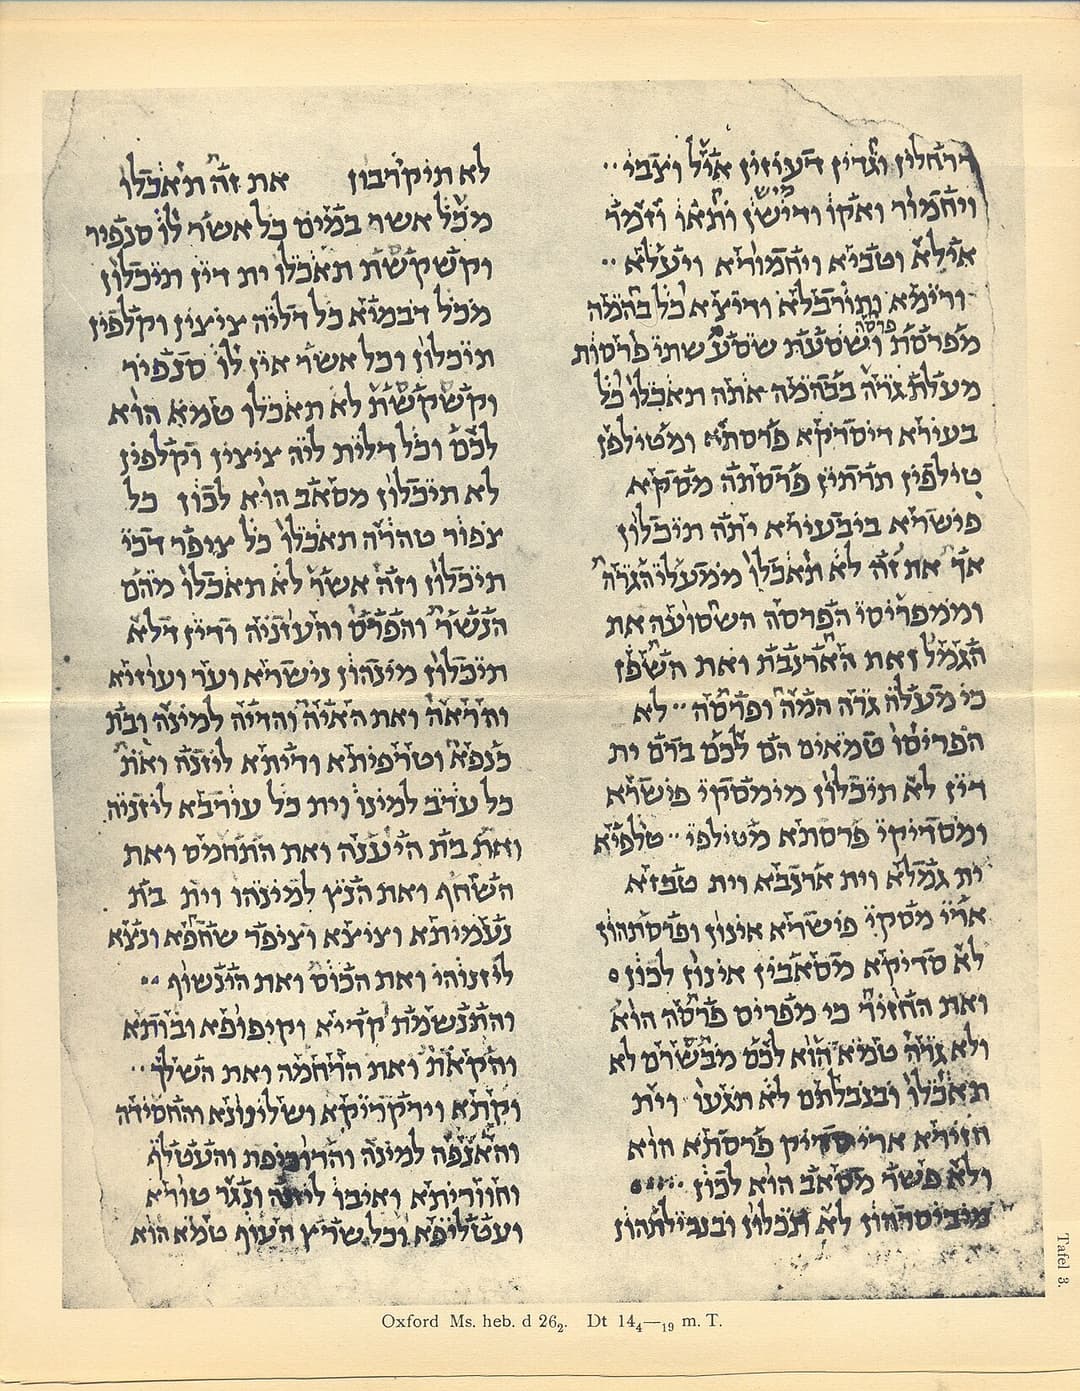 דרחלין וגדיין דעוזין איל וצבי
ויחמור ואקו ודישן ותאו וזמר
אילא וטביא ויחמורא ויעלא
ורימא ותורבלא ודיצא כל בהמה
מפרסת פרסה ושסעת שסע שתי פרסות
מעלת גרה בבהמה אתה תאכלו כל
בעירא דיסדיקא פרסתא ומטילפן
טילפין תרתין פרסתה מסקא
פישרא ביבעירא יתה תיכלון
אך את זה לא תאכלו ממעלי הגרה
וממפריסי הפרסה השסועה את
הגמל ואת הארנבת ואת השפן
כי מעלה גרה המה ופרסה לא
הפריסו טמאים הם לכם ברם ית
דין לא תיכלון מימסקי פישרא
ומסדיקי פרסתא מטילפי טלפיא
ית גמלא וית ארנבא וית טבזא
ארי מסקי פישרא אינון ופרסתהון
לא סדיקא מסאבין אינון לכון
ואת החזיר כי מפריס פרסה הוא
ולא גרה טמא הוא לכם מבשרם לא
תאכלו ובנבלתם לא תגעו וית
חזירא ארי סדיק פרסתא הוא
ולא פשר מסאב הוא לכון
מיביסרהון לא תכלון ובנבילתהון
לא תיקרבון את זה תאכלו
מכל אשר במים כל אשר לו סנפיר
וקשקשת תאכלו ית דין תיכלון
מכל דבמיא כל דליה ציצין וקלפין
תיכלון וכל אשר אין לו סנפיר
וקשקשת לא תאכלו טמא הוא
לכם וכל דלית ליה ציצין וקלפין
לא תיכלון מסאב הוא לכון כל
צפור טהרה תאכלו כל ציפר דכי
תיכלון וזה אשר לא תאכלו מהם
הנשר והפרס והעזניה ודין דלא
תיכלון מינהון נישרא וער ועוזיא
והראה ואת האיה והדיה למינה ובת
כנפא וטרפיתא ודיתא ליזנה ואת
כל ערב למינו וית כל עורבא ליזניה
ואת בת היענה ואת התחמס ואת
השחף ואת הנץ למינהו וית בת
נעמיתא וציצא וציפר שחפא ונצא
ליזנוהי ואת הכוס ואת הינשוף
והתנשמת קדיא וקיפופא ובותא
והקאת ואת הרחמה ואת השלך
וקתא וירקריקא ושלינונא והחסידה
והאנפה למינה והדוכיפת והעטלף
וחווריתא ואיבו ליזנה ונגר טורא
ועטליפא וכל שרץ העוף טמא הוא
Oxford Ms. heb. d 26₂. Dt 14₄—₁₉ m. T.
Tafel 3.